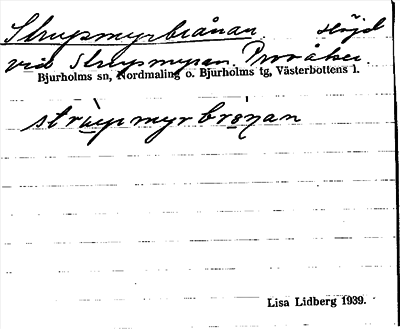 Strupmyrbrånan. Höjd
vid Strupmyran. Provåker.
Bjurholms sn, Nordmaling o. Bjurholms tg, Västerbottens l.
strùpmyrbrònan
Lisa Lidberg 1939.